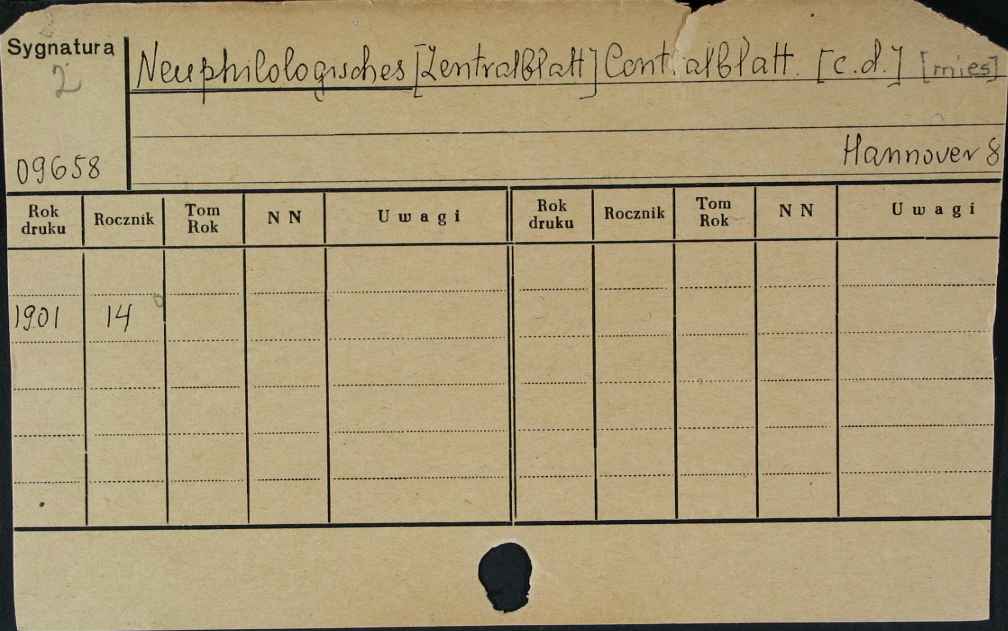 Sygnatura
2
Neuphilologisches [Zentralblatt] Centralblatt. [c.d.] [mies]
09658
Hannover 8
Rok druku Rocznik Tom Rok N N Uwagi Rok druku Rocznik Tom Rok N N Uwagi
1901 14